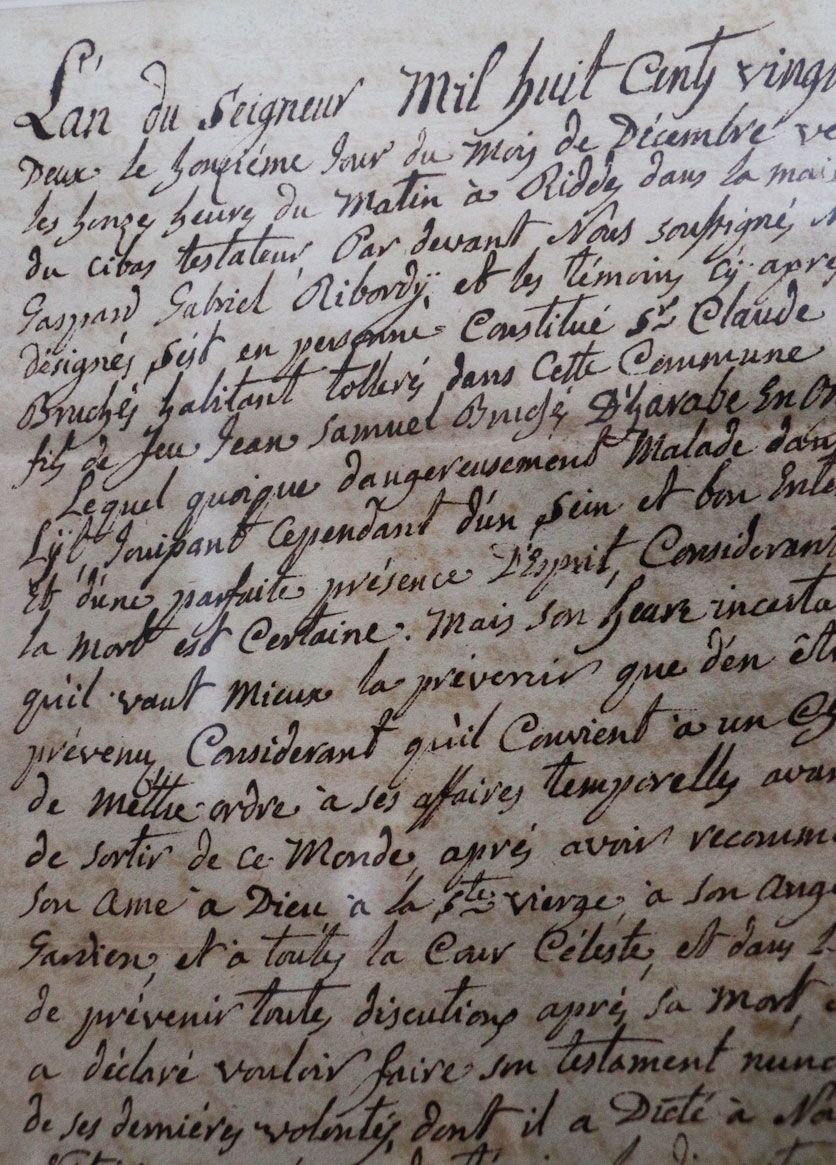 L'an du Seigneur Mil huit Cents vingt
Deux le honzième Jour du Mois de Décembre ve
les honze heures du Matin à Riddes dans la mai
du cibas testateur, Par devant Nous soussigné N
Gaspard Gabriel Ribordÿ, et les témoins cÿ aprè
désignés s'est en personne Constitué Sr Claude
Bruchés habitant tollerés dans Cette Commune
fils de feu Jean Samuel Bruchés D'harabe En
Lequel quoique dangereusement Malade dans
Lÿt Jouissant cependant d'un Sein et bon Ente
Et d'une parfaite présence D'Esprit, Considerant
la mort est Certaine. Mais son heure incerta
qu'il vaut Mieux la prévenir que d'en êtr
prévenu, Considerant qu'il Convient à un
de Mettre ordre à ses affaires temporelles avan
de sortir de ce Monde, après avoir recomm
son Ame à Dieu à la Ste vierge, à son Ange
Gardien, et à toutes la Cour Céleste, et dans l
de prévenir toutes discutions après sa Mort,
a déclaré vouloir faire son testament nunc
de ses dernières volontés, dont il a Dicté à No